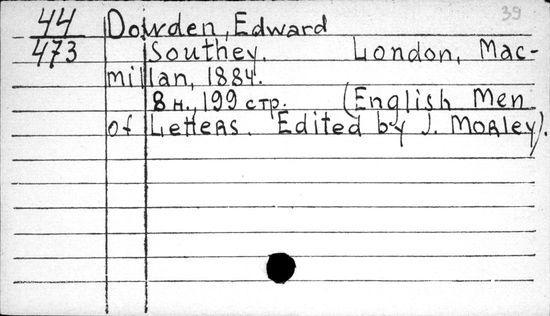 39
44 Dowden, Edward
473 Southey. London, Mac-
millan, 1884.
8 н., 199 стр. (English Men
of Letters. Edited by J. Morley).